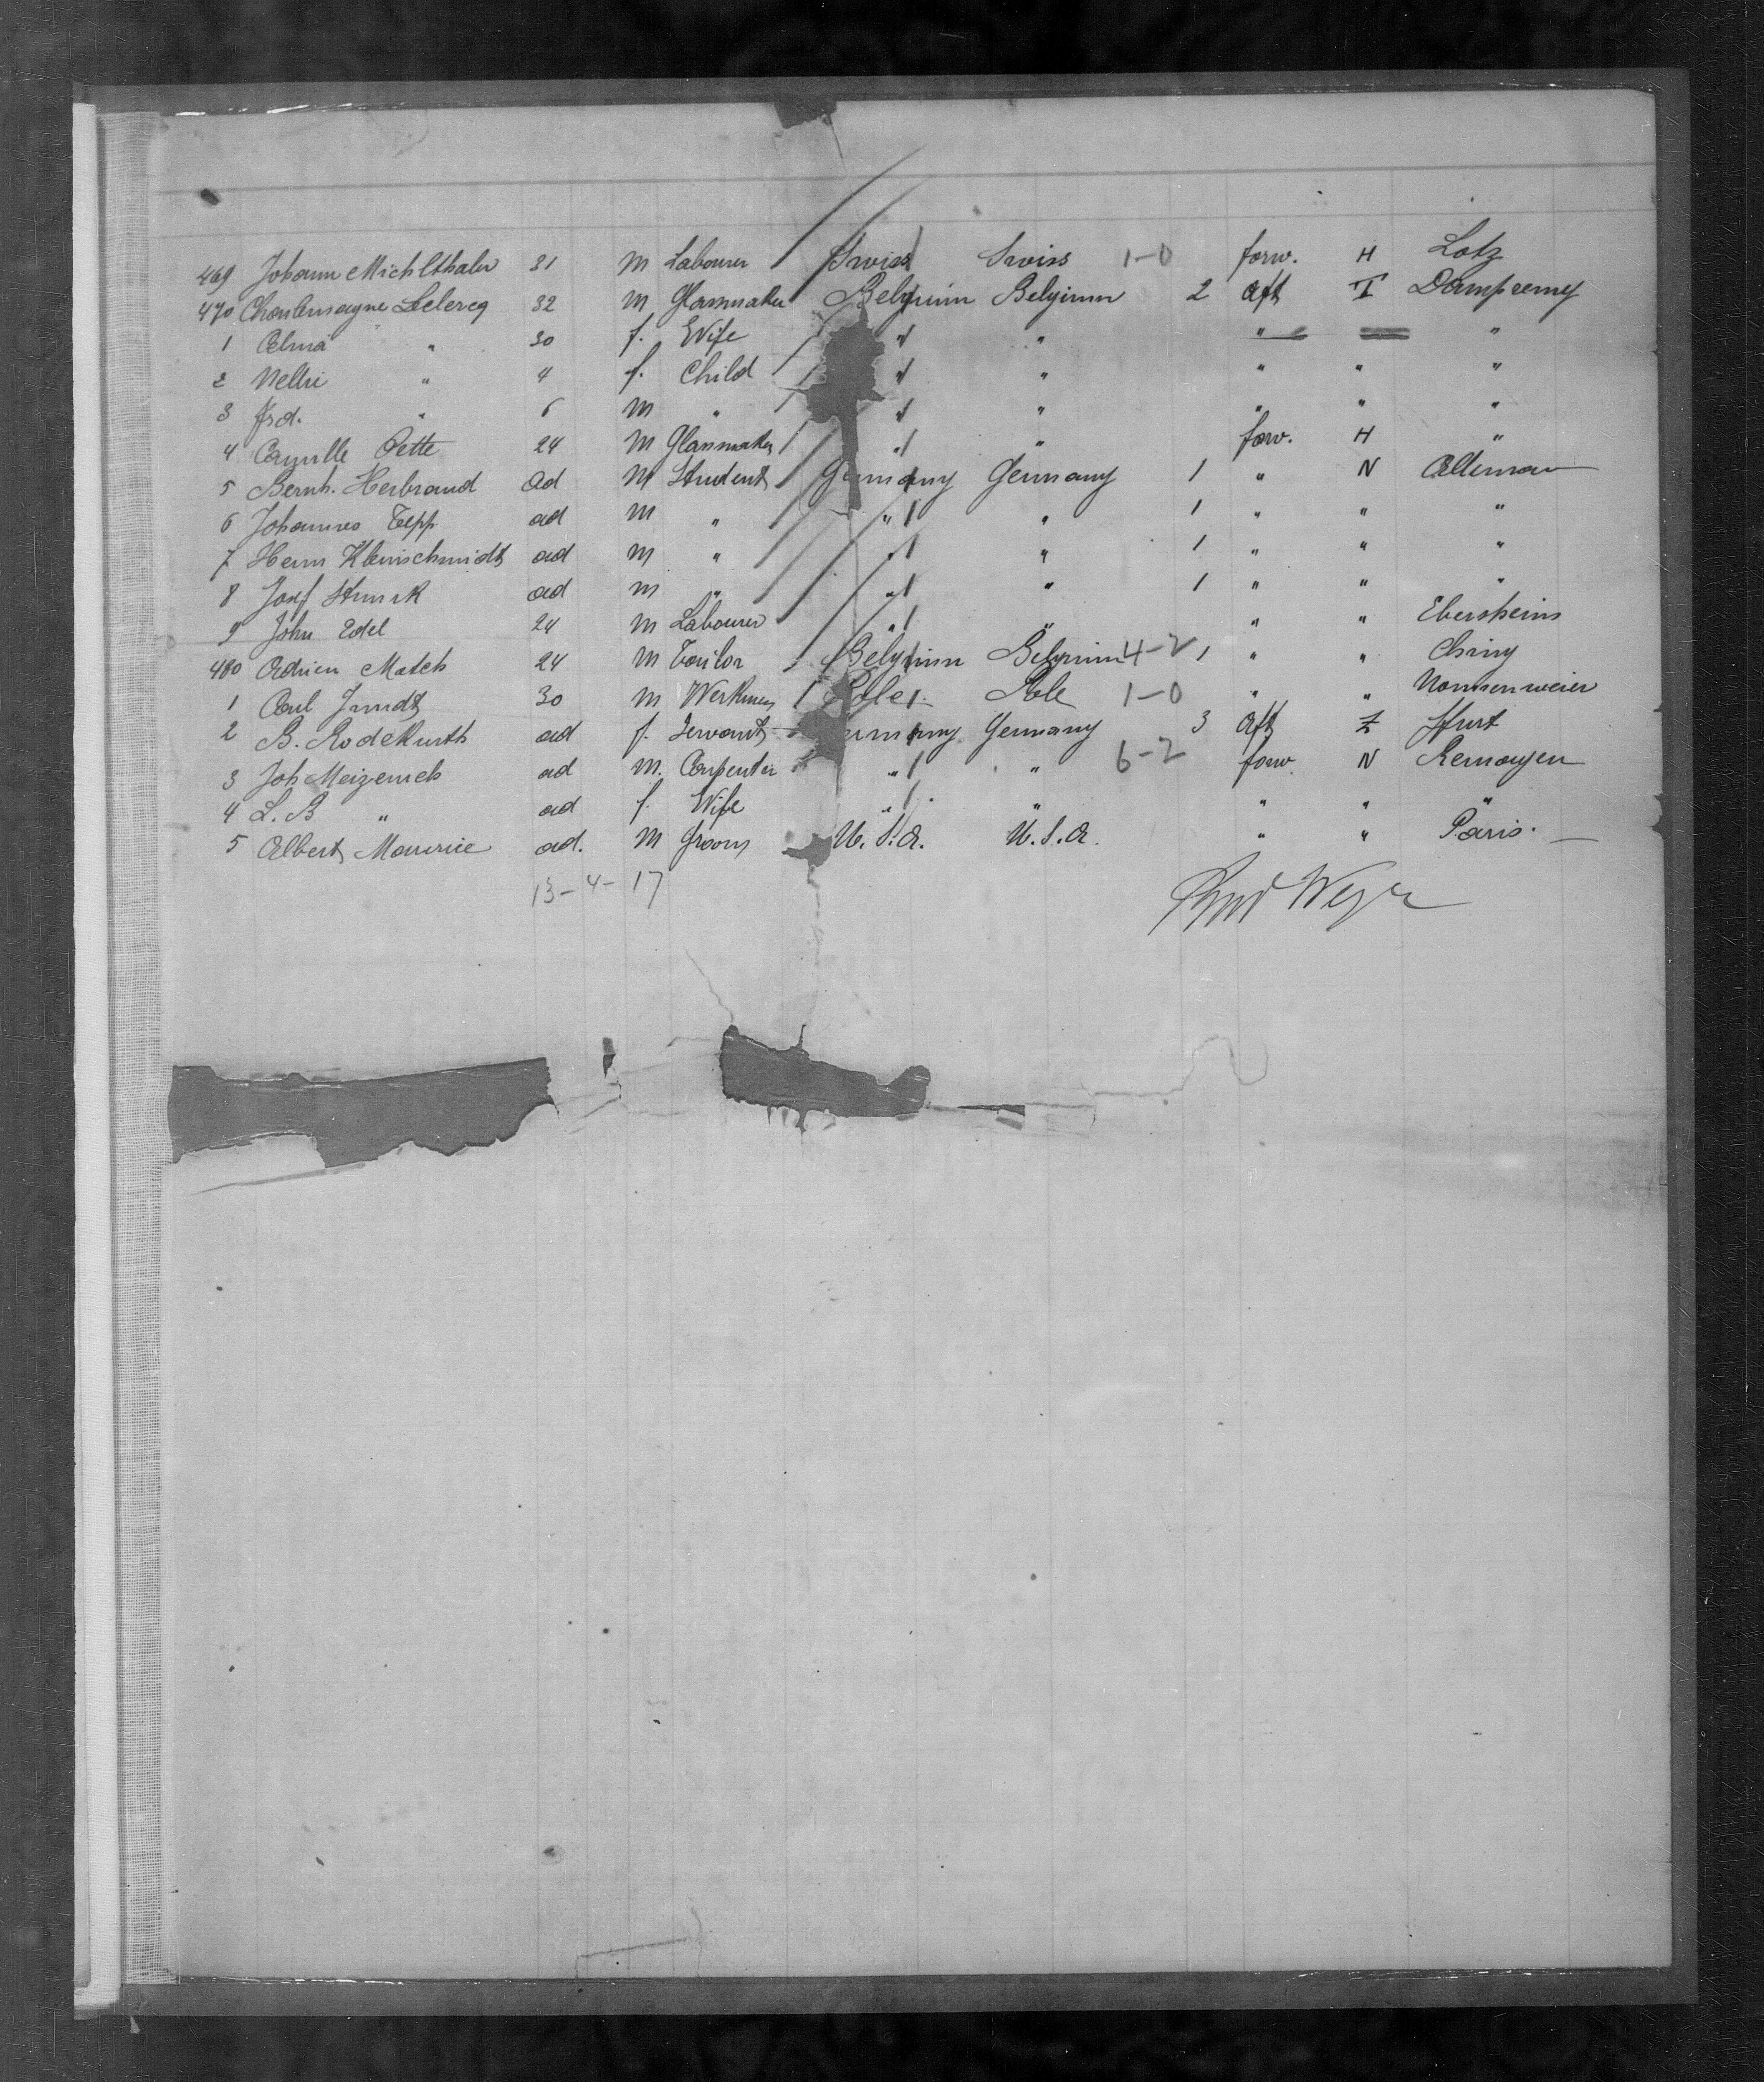 469 Johann Michlthaler 31 m Labourer Swiss Swiss 1-0 forw. H Lotz
470 Charlemagne Leclercq 32 m Glassmaker Belgium Belgium 2 aft I Dampremy
1 Celina " 30 f. Wife " " " "
2 Nelli " 4 f. Child " " " " "
3 Frd. " 6 m " " " " " "
4 Camille Pette 24 m Glassmaker " " forw. H "
5 Bernh. Herbrand ad m Student Germany Germany 1 " N
6 Johannes Tepp ad m " " " 1 " " "
7 Herm Kleinschmidt ad m " " " 1 " " "
8 Josef ad m " " " 1 " " "
9 John Edel 24 m Labourer " " " " Ebersheim
480 Adrien Match 24 m Tailor Belgium Belgium 4-2 1 " " Chiny
1 Carl Jundt 30 m Werkmen 1-0 " " Nonnenweier
2 B. Rodekurth ad f. Servant Germany 3 aft
3 Joh Meizenich ad m. Carpenter " " 6-2 forw. N Remagen
4 L. B " ad f. Wife " " " " "
5 Albert Maurice ad. m Groom U. S. A. U. S. A. " " Paris.
13-4-17